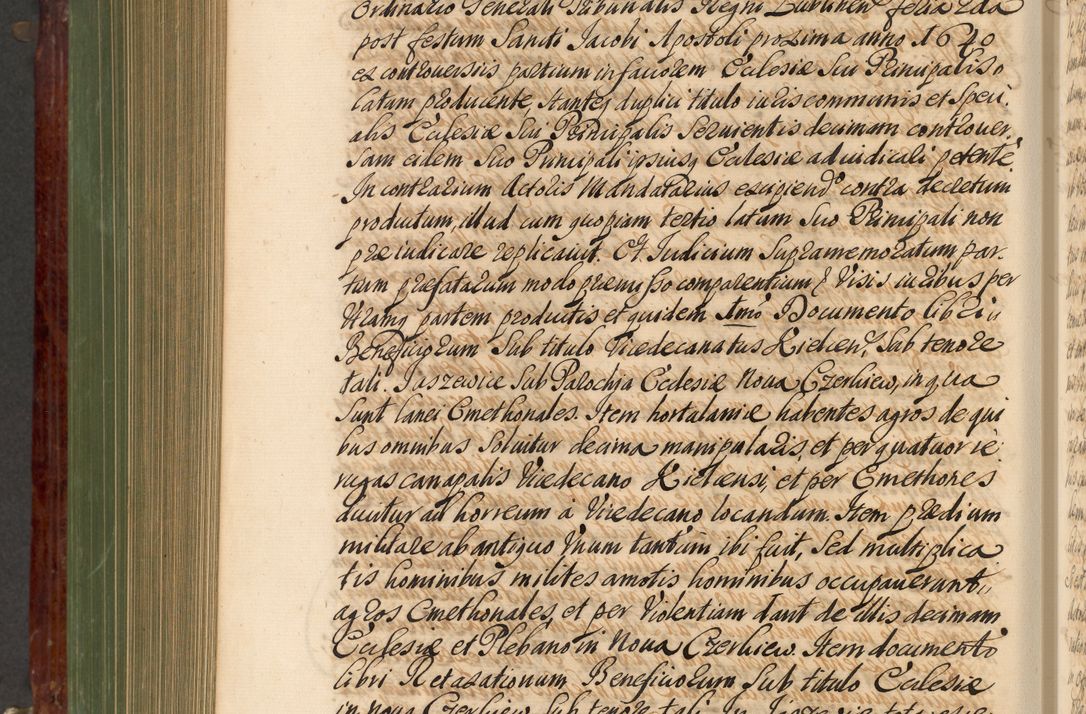 Ordinario Generali Tribunalis Regni Lublinen feria 2da
post festum Sancti Jacobi Apostoli proxima anno 1640
ex controversiis partium in fauorem Ecclesiæ Sui Principalis
latam producente, stanteq duplici titulo iuris communis et speci-
alis Ecclesiæ Sui Principalis Seruientis decimam controuer-
sam eidem Suo Principali ipsiusq Ecclesiæ adiudicali petente
In contrarium Actoris Mandatarius excipiendo contra decretum
productum, illud cum quopiam tertio latum Suo Principali non
præiudicare replicauit. Et Judicium Supramemoratum par-
tium præfatarum modo præmisso comparentium Visis iuribus per
Utramq partem productis et quidem Imo Documento libri
Beneficiorum Sub titulo Vicedecanatus Kielcen, Sub tenore
tali. Jaszewice Sub Parochia Ecclesiæ Noua Czerkiew, in qua
Sunt lanei Cmethonales. Item hortulaniæ habentes agros de qui
bus omnibus Soluitur decima manipularis, et per quatuor ie-
rugas canapalis Vicedecano Kielcensi, et per Cmethones
ducitur ad horreum à Vicedecano locandum. Item prædium
militare ab antiquo Vnum tantum ibi fuit, Sed multiplica
tis hominibus milites amotis hominibus occupauerunt
agros Cmethonales, et per Violentiam dant de illis decimam
Ecclesiæ et Plebano in Noua Czerkiew. Item documento
libri Retaxationum Beneficiorum Sub titulo Ecclesiæ
in noua Czerkiew Sub tenore tali. In